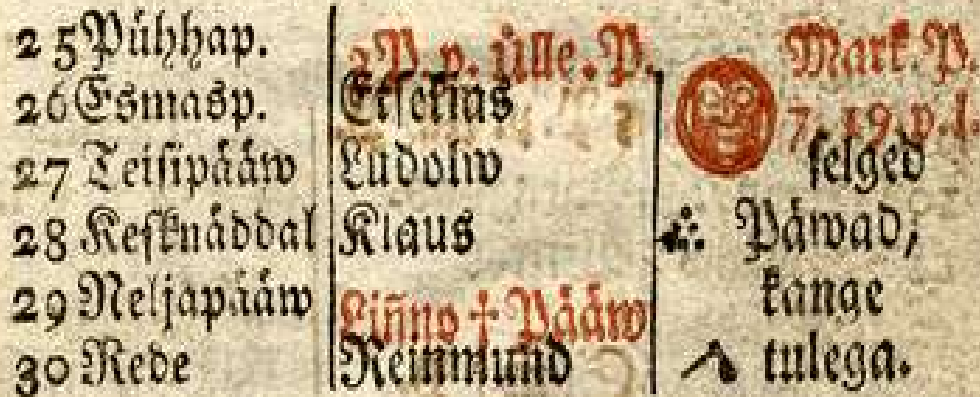 25 Pühhap. 2 P. p. ülle. P. Mark. P.
26 Esmasp. Etsekias 7, 19. p. l.
27 Teisipääw Ludolw selged
28 Kesknäddal Klaus Päwad,
29 Neljapääw Liñno † Pääw kange
30 Rede Reinmund tulega.